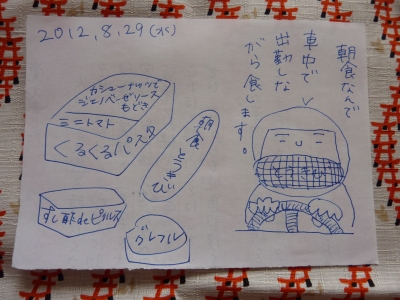 2012.8.29(水)
カシューナッツで
ジェノベーゼソース
もどき
ミニトマト
くるくるパスタ
朝食
とうきび
すし酢deピクルス
グレフル
朝食なんで
車中で
出勤しな
がら食します。
とうきび